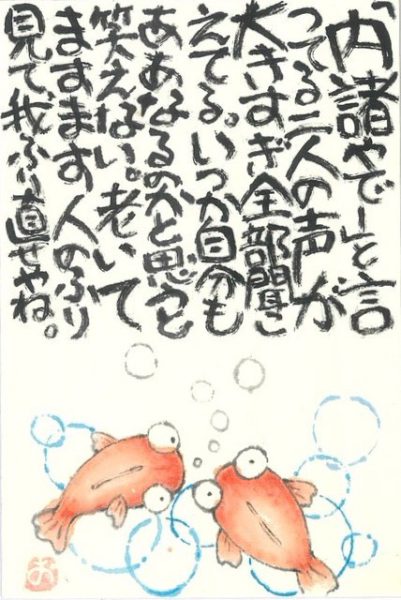 「内諸やで」と言
ってる二人の声が
大きすぎ全部聞こ
えてる。いつか自分も
ああなるのかと思うと
笑えない。老いて
ますます人のふり
見て、我ふり直せやね。
お